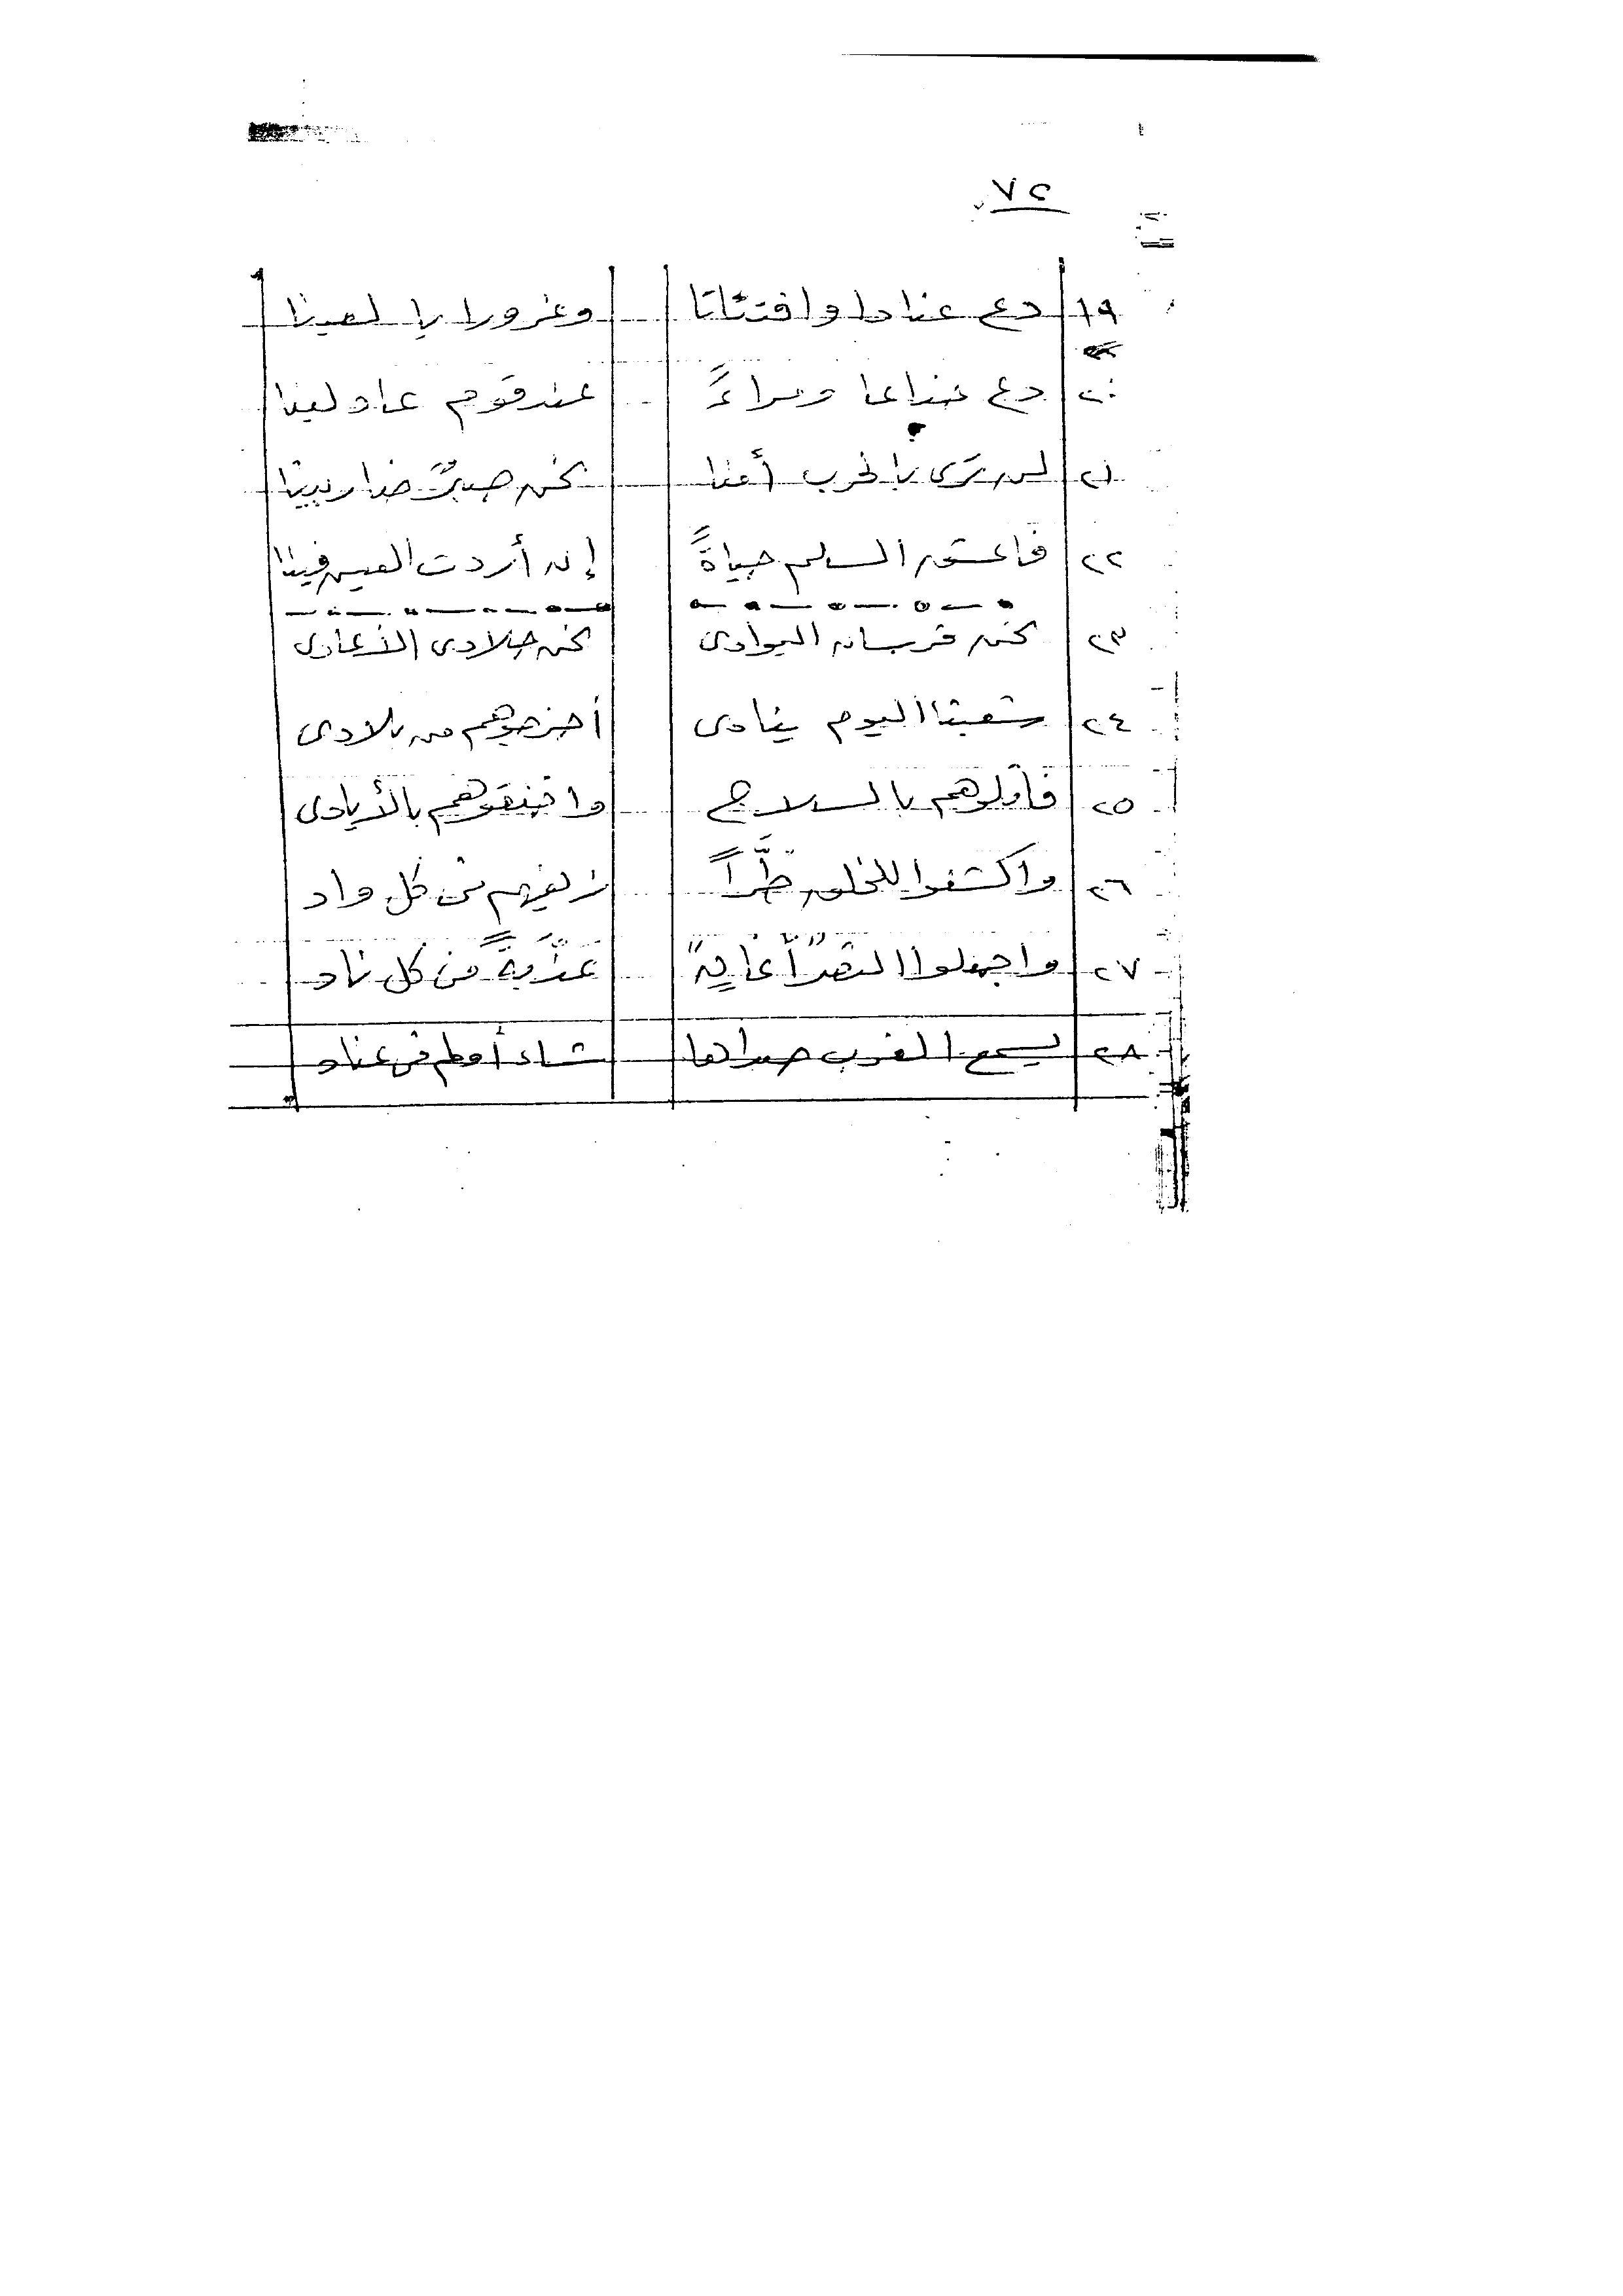 ٧٢
١٩ دع عنادا وافتئاتا وغرورا يا لعينا
٢٠ دع خداعا ومراءً عند قوم عادلينا
٢١ لن ترى بالحرب أمنا نحن صبرٌ ضاربينا
٢٢ فاعشق السلم حياةً إن أردت العيش فينا
٢٣ نحن فرسان البوادى نحن جلادى الأعادى
٢٤ شعبنا اليوم ينادى أخرجوهم من بلادى
٢٥ قاتلوهم بالسلاح واخنقوهم بالأيادى
٢٦ واكشفوا للخلق طُرَّاً زيفهم فى كل واد
٢٧ واجعلوا غايةً عذبةً فى كل ناد
٢٨ يسمع الغرب صداها شاء أم ظل فى عناد